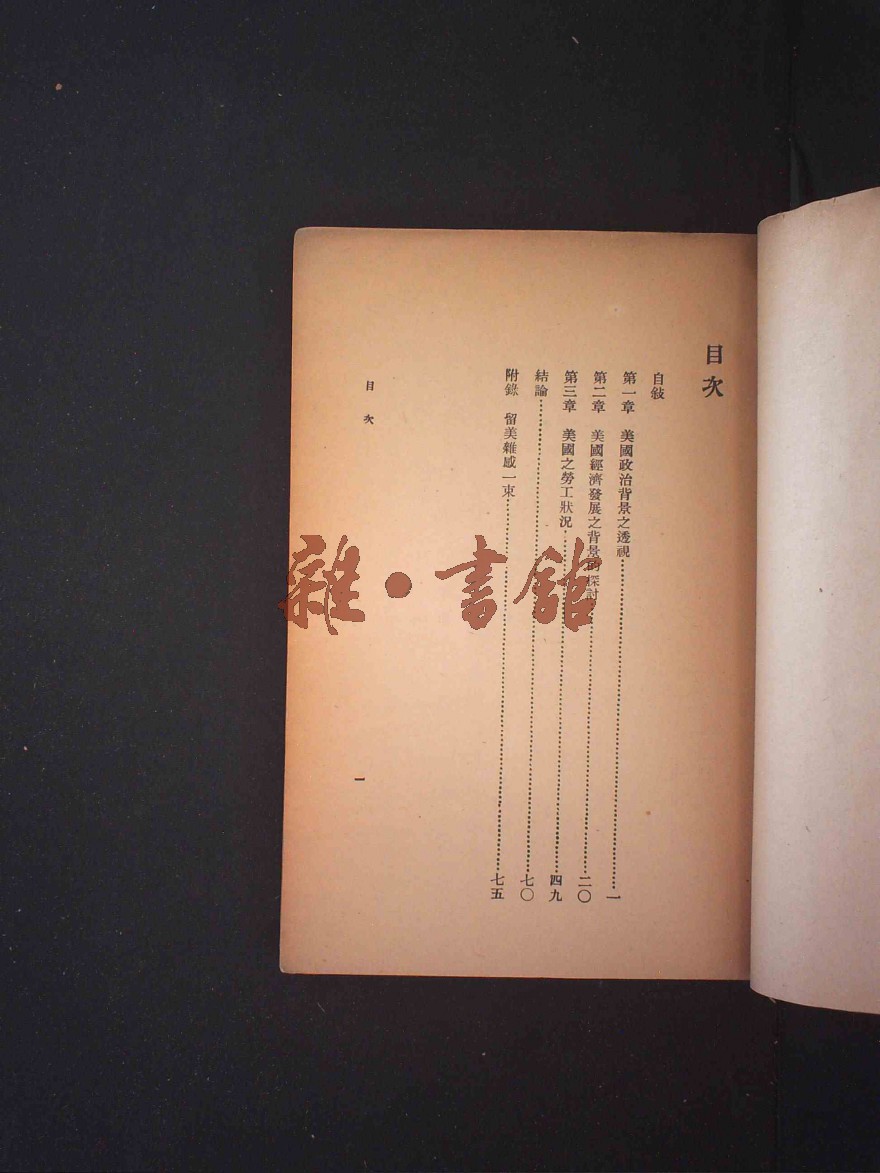 目次
自敍
第一章 美國政治背景之透視………一
第二章 美國經濟發展之背景的探討………二〇
第三章 美國之勞工狀況………四九
結論………七〇
附錄 留美雜感一束………七五
目次
一
雜·書館